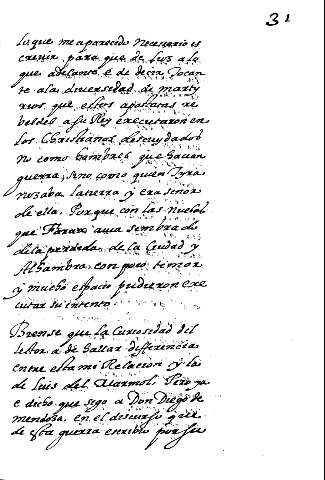 31
lo que me a parecido Necesario es
crevir para que de luz a lo
que adelante e de decir Tocan
te a la diversedad de marty
rios que estos apostatas re
beldes a su Rey executaron en
los Christianos descuydados
no como hombres que hacian
guerra, sino como quien Tyra
nizaba la tierra y era señor
de ella. Porque con las nuebas
que Farax avia sembrado
de la perdida de la Ciudad y
Alhambra con poco temor
y mucho espacio pudieron exe
cutar su intento.
Biense que la Curiosidad del
letor a de hallar differencia
entre esta mi Relacion y la
de luis del Marmol. Pero ya
e dicho que sigo a Don Diego de
mendoza. en el discurso que
de esta guerra escribio por su